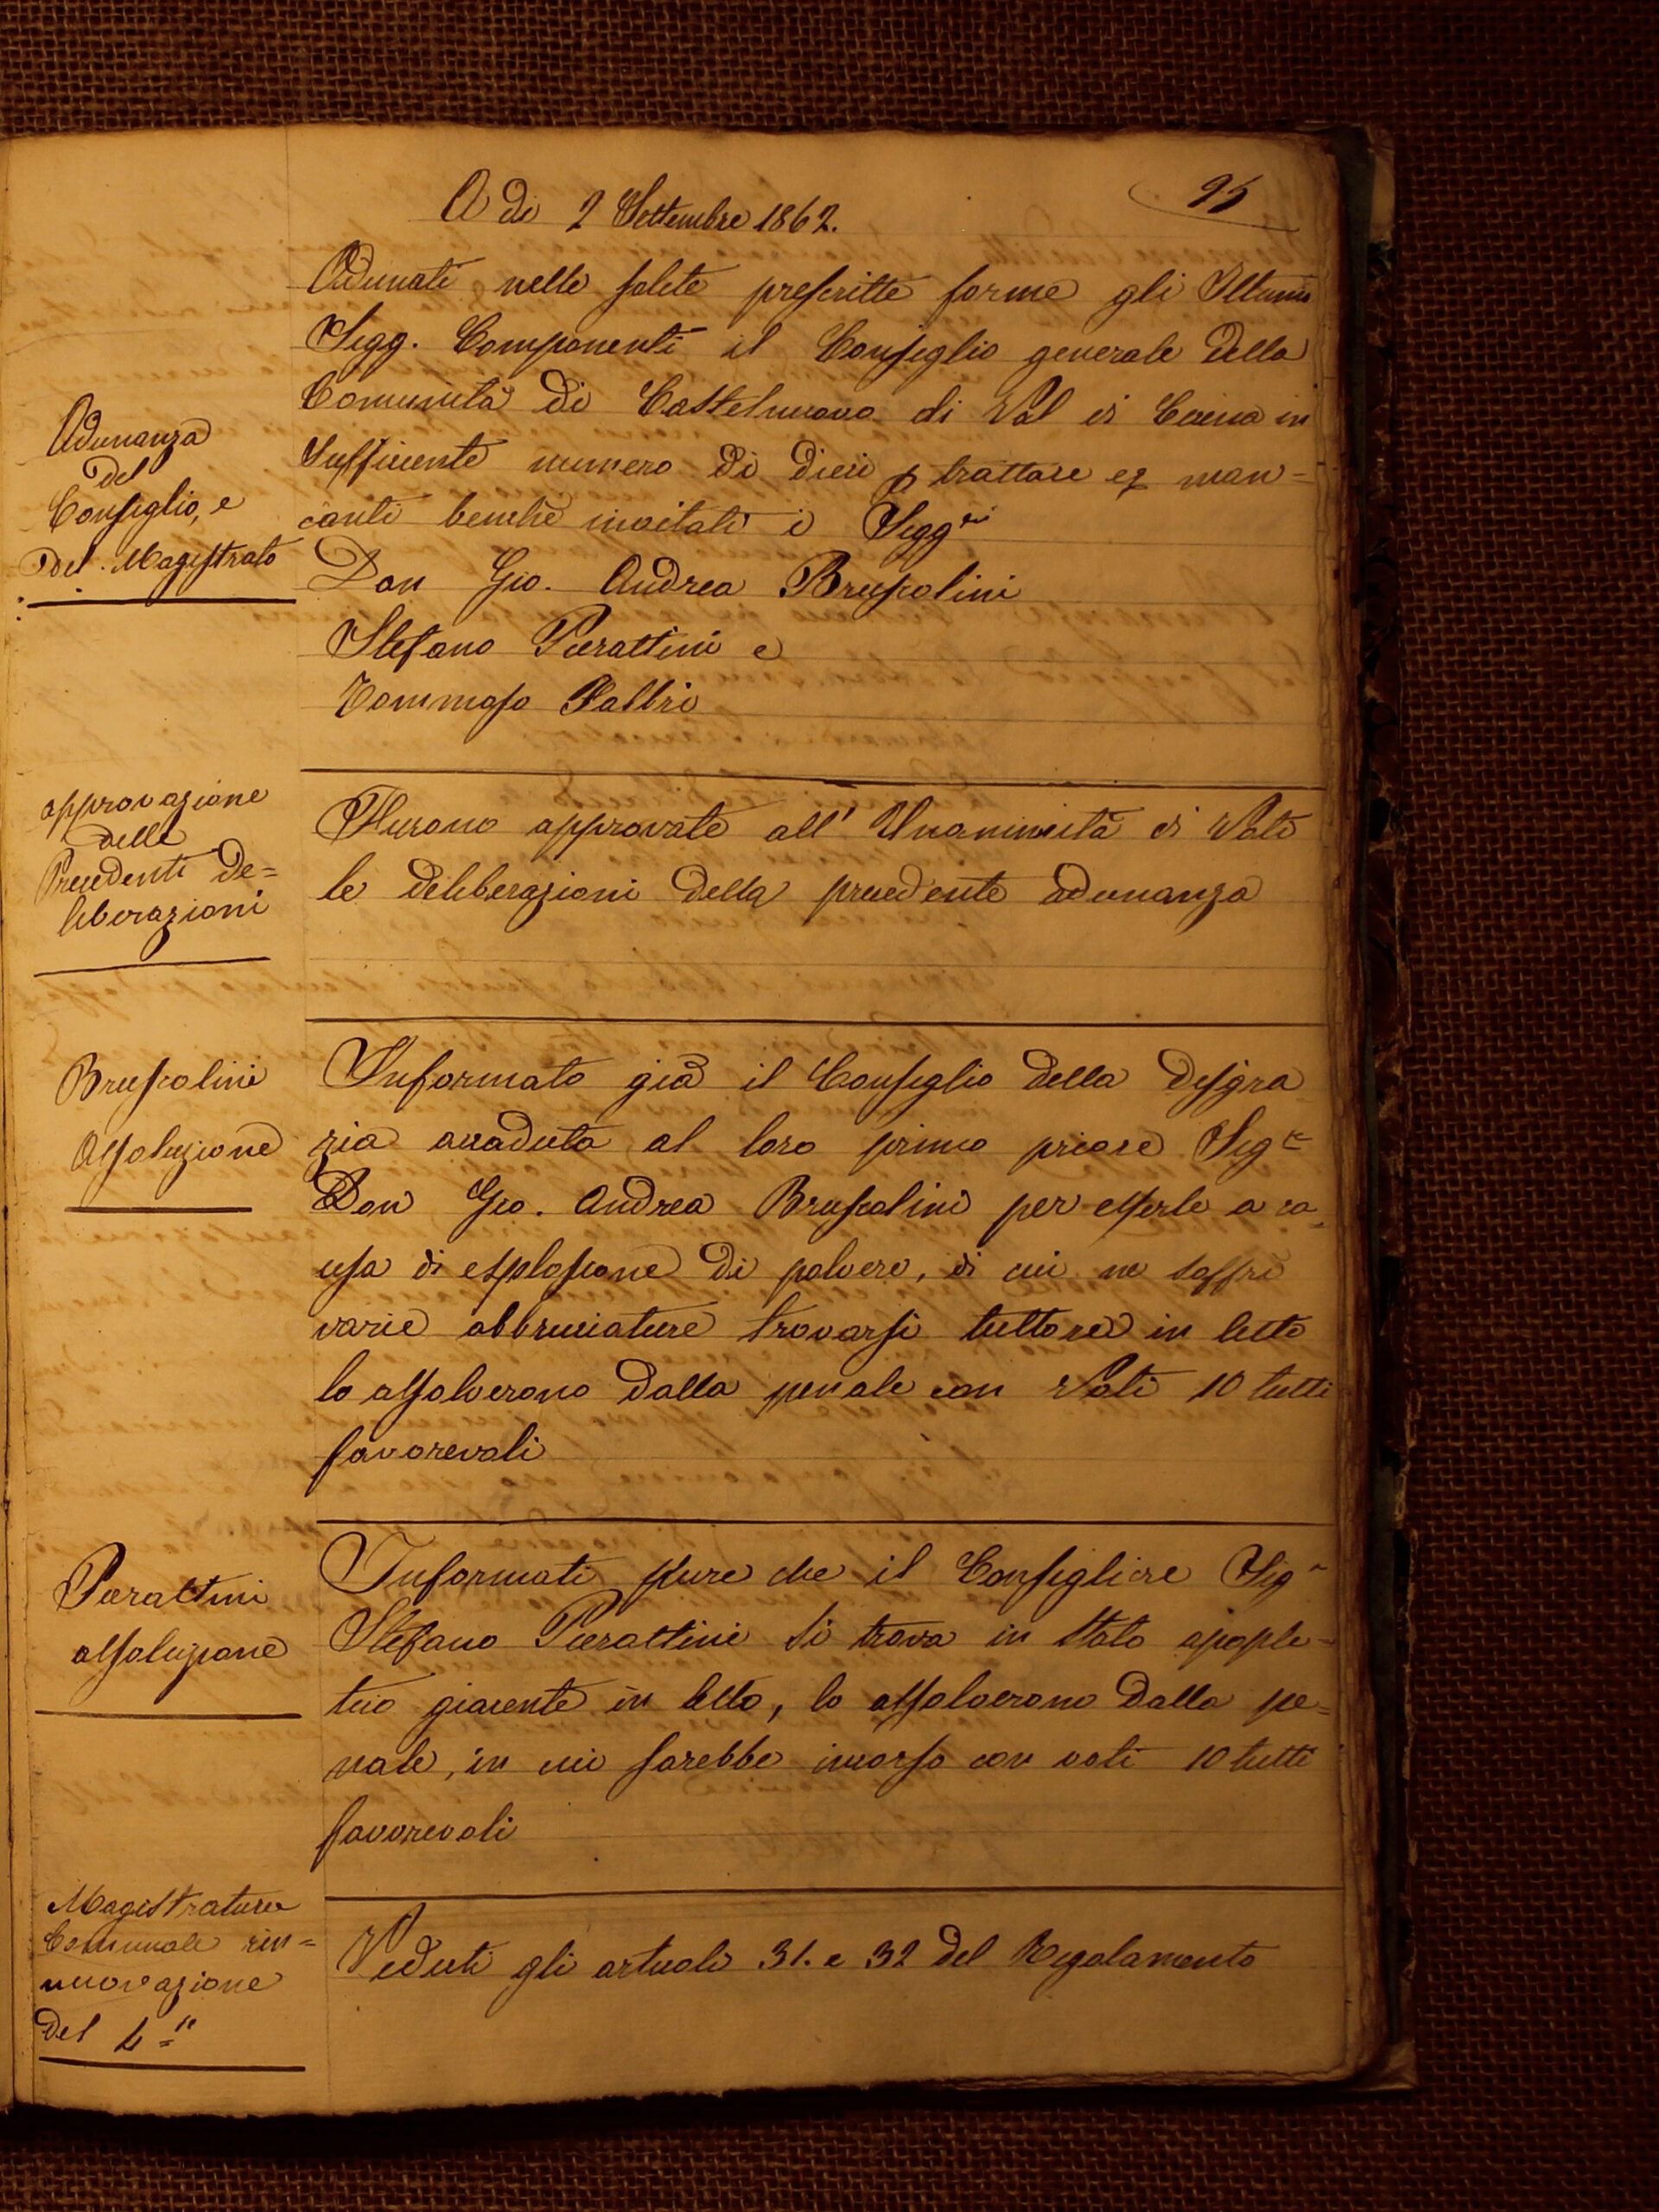 95
A di 2 Settembre 1862.
Adunati nelle solite prescritte forme gli Illumi
Sigg. Componenti il Consiglio generale della
Comunità di Castelnuovo di Val di Cecina in
Adunanza
del
Consiglio, e
del Magistrato
sufficiente numero di dieci p trattare ez man=
canti benchè invitati i Siggri
Don Gio. Andrea Bruscolini
Stefano Pierattini e
Tommaso Fabbri
approvazione
delle
Precedenti De=
liberazioni
Furono approvate all' Unanimità di Voti
le deliberazioni della precedente adunanza
Bruscolini
Assoluzione
Informato già il Consiglio della disgra
zia accaduta al loro primo priore Sigre
Don Gio. Andrea Bruscolini per esserle a ca
usa di esplosione di polvere, di cui ne soffrì
varie abbruciature trovarsi tuttora in letto
lo assolverono dalla penale con Voti 10 tutti
favorevoli
Pierattini
assoluzione
Informati pure che il Consigliere Sigr
Stefano Pierattini si trova in stato apople=
tico giacente in letto, lo assolverono dalla pe=
nale, in cui sarebbe incorso con voti 10 tutti
favorevoli
Magistratura
Comunale rin=
nuovazione
del 4to
Veduti gli articoli 31. e 32 del Regolamento